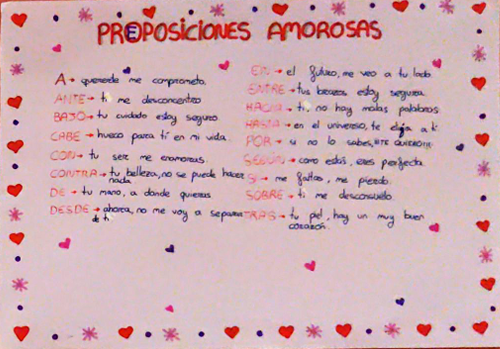 PREPOSICIONES AMOROSAS
A → quererte me comprometo.
ANTE → ti me desconcentro
BAJO → tu cuidado estoy seguro.
CABE → hueco para ti en mi vida.
CON → tu ser me enamoras.
CONTRA → tu belleza, no se puede hacer
nada.
DE → tu mano, a donde quieras
DESDE → ahora, no me voy a separar
de ti.
EN → el futuro, me veo a tu lado.
ENTRE → tus brazos estoy segura.
HACIA → ti, no hay malas palabras.
HASTA → en el universo, te elijo a ti.
POR → si no lo sabes,
SEGÚN → como estás, eres perfecta.
SI → me faltas, me pierdo.
SOBRE → ti me desconsuelo.
TRAS → tu piel, hay un muy buen
corazón.